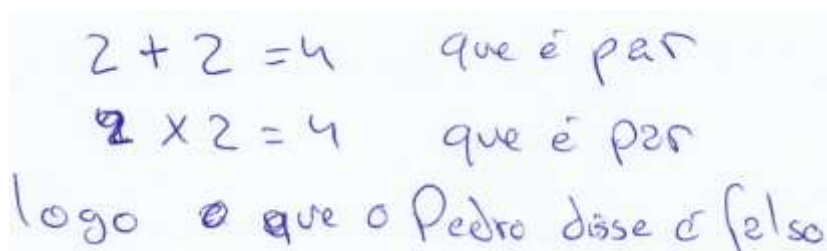 2 + 2 = 4 que é par
2 x 2 = 4 que é par
logo o que o Pedro disse é falso